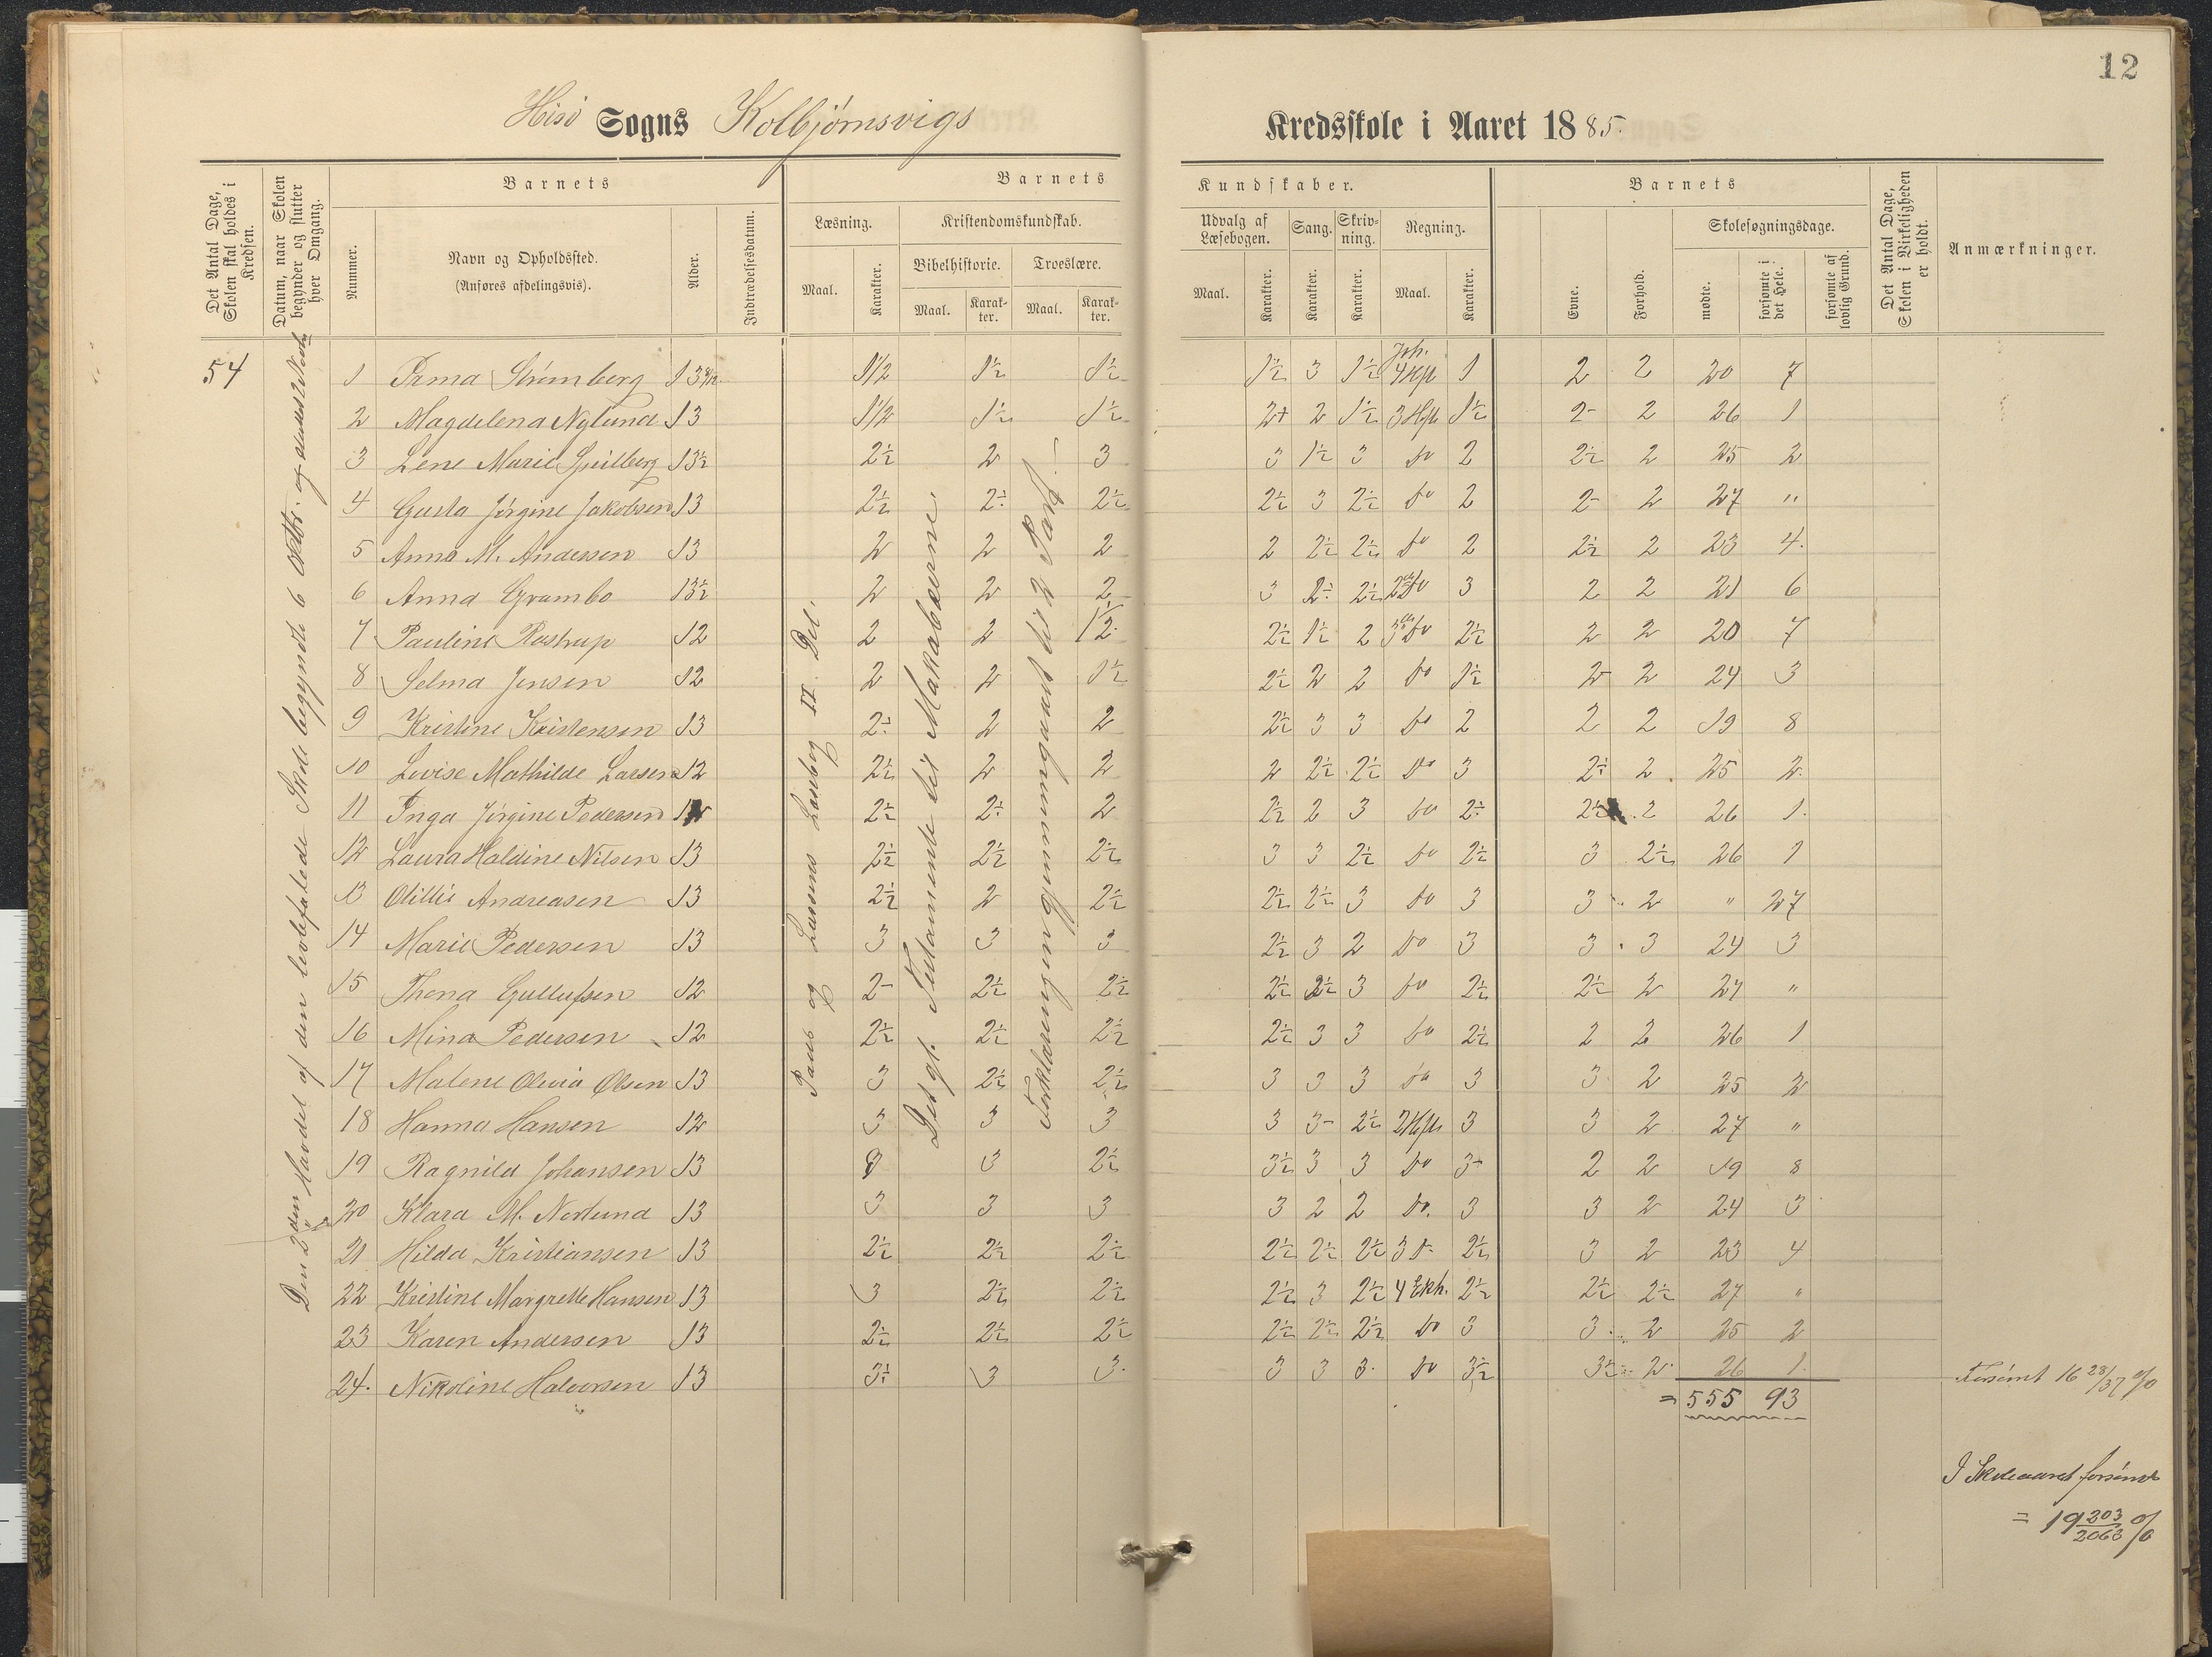 12
Hisö Sogns Kolbjörnsvigs Kredsskole i Aaret 1885.
Det Antal Dage, Skolen skal holdes i Kredsen.
Datum, naar Skolen begynder og slutter hver Omgang.
Barnets
Nummer.
Navn og Opholdssted.
(Anføres afdelingsvis).
Alder.
Indtrædelsesdatum.
Barnets Kundskaber.
Læsning.
Maal.
Karakter.
Kristendomskundskab.
Bibelhistorie.
Maal.
Karakter.
Troeslære.
Maal.
Karakter.
Udvalg af Læsebogen.
Maal.
Karakter.
Sang.
Karakter.
Skrivning.
Karakter.
Regning.
Maal.
Karakter.
Barnets
Evne.
Forhold.
Skolesøgningsdage.
mødte.
forsømte i det Hele.
forsømte af lovlig Grund.
Det Antal Dage, Skolen i Virkeligheden er holdt.
Anmærkninger.
54
Skole begyndte 6 Octbr.
Pauss og Lassens Læsebog II Del.
Det gl. Testamente til Makabæerne
Forklaringen gjennemgaaet til 2 Part.
1 Irma Strömberg 1 1/2 1½ 1½ 1½ 3 1½ 1 2 2 20 7
2 Magdelena Nylund 13 1 1/2 1½ 1½ 2+ 2 1½ 3 Hft 1½ 2- 2 26 1
3 Lene Marie Spilberg 13½ 2½ 2 3 3 1½ 3 do 2 2½ 2 25 2
4 Gusta Jörgine Jakobsen 13 2½ 2÷ 2½ 2½ 3 2½ do 2 2- 2 27 "
5 Anna M. Andersen 13 2 2 2 2 2½ 2½ do 2 2½ 2 23 4.
6 Anna Grambo 13½ 2 2 2 3 2÷ 2½ 2 do 3 2 2 21 6
7 Pauline Rostrup 12 2 2 1½ 2½ 1½ 2 3 do 2½ 2 2 20 7
8 Selma Jensen 12 2 2 1½ 2½ 2 2 do 1½ 2 2 24 3
9 Kristine Kristensen 13 2÷ 2 2 2½ 3 3 do 2 2 2 19 8
10 Lovise Mathilde Larsen 12 2½ 2 2 2 2½ 2½ do 3 2÷ 2 25 2.
11 Inga Jörgine Pedersen 2½ 2÷ 2 2½ 2 3 do 2÷ 2½ 2 26 1.
12 Laura Haldine Nilsen 13 2½ 2½ 2½ 3 3 2½ do 2½ 3 2½ 26 1
13 Olillie Andreasen 13 2½ 2 2½ 2½ 2½ 3 do 3 3 2 " 27
14 Marie Pedersen 13 3 3 3 2½ 3 2 do 3 3 3 24 3
15 Thona Gullufsen 12 2- 2½ 2½ 2½ 2½ 3 do 2½ 2½ 2 27 "
16 Mina Pedersen 12 2½ 2½ 2½ 2½ 3 3 do 2½ 2 2 26 1
17 Malene Olivia Olsen 13 3 2½ 2½ 3 3 3 do 3 3 2 25 2
18 Hanna Hansen 12 3 3 3 3 3- 2½ 2 Hft 3 3 2 27 "
19 Ragnild Johansen 13 3 2½ 3½ 3 3 do 3- 2 2 19 8
20 Klara M. Norlund 13 3 3 3 3 2 2 do. 3 3 2 24 3
21 Hilda Kristiansen 13 2½ 2½ 2½ 2½ 2½ 2½ 3 D. 2½ 3 2 23 4
22 Kristine Margrethe Hansen 13 3 2½ 2½ 2½ 3 2½ 4 Ekh. 2½ 2½ 2½ 27 "
23 Karen Andersen 13 2½ 2½ 2½ 2½ 2½ 2½ do 3 3 2 25 2
24. Nikoline Halvorsen 13 3÷ 3 3. 3 3 3. do 3½ 3½ 2. 26 1.
= 555 93
Forsömt 16 28/37 %
I Skoleaaret forsömt
= 19 203/2063 %